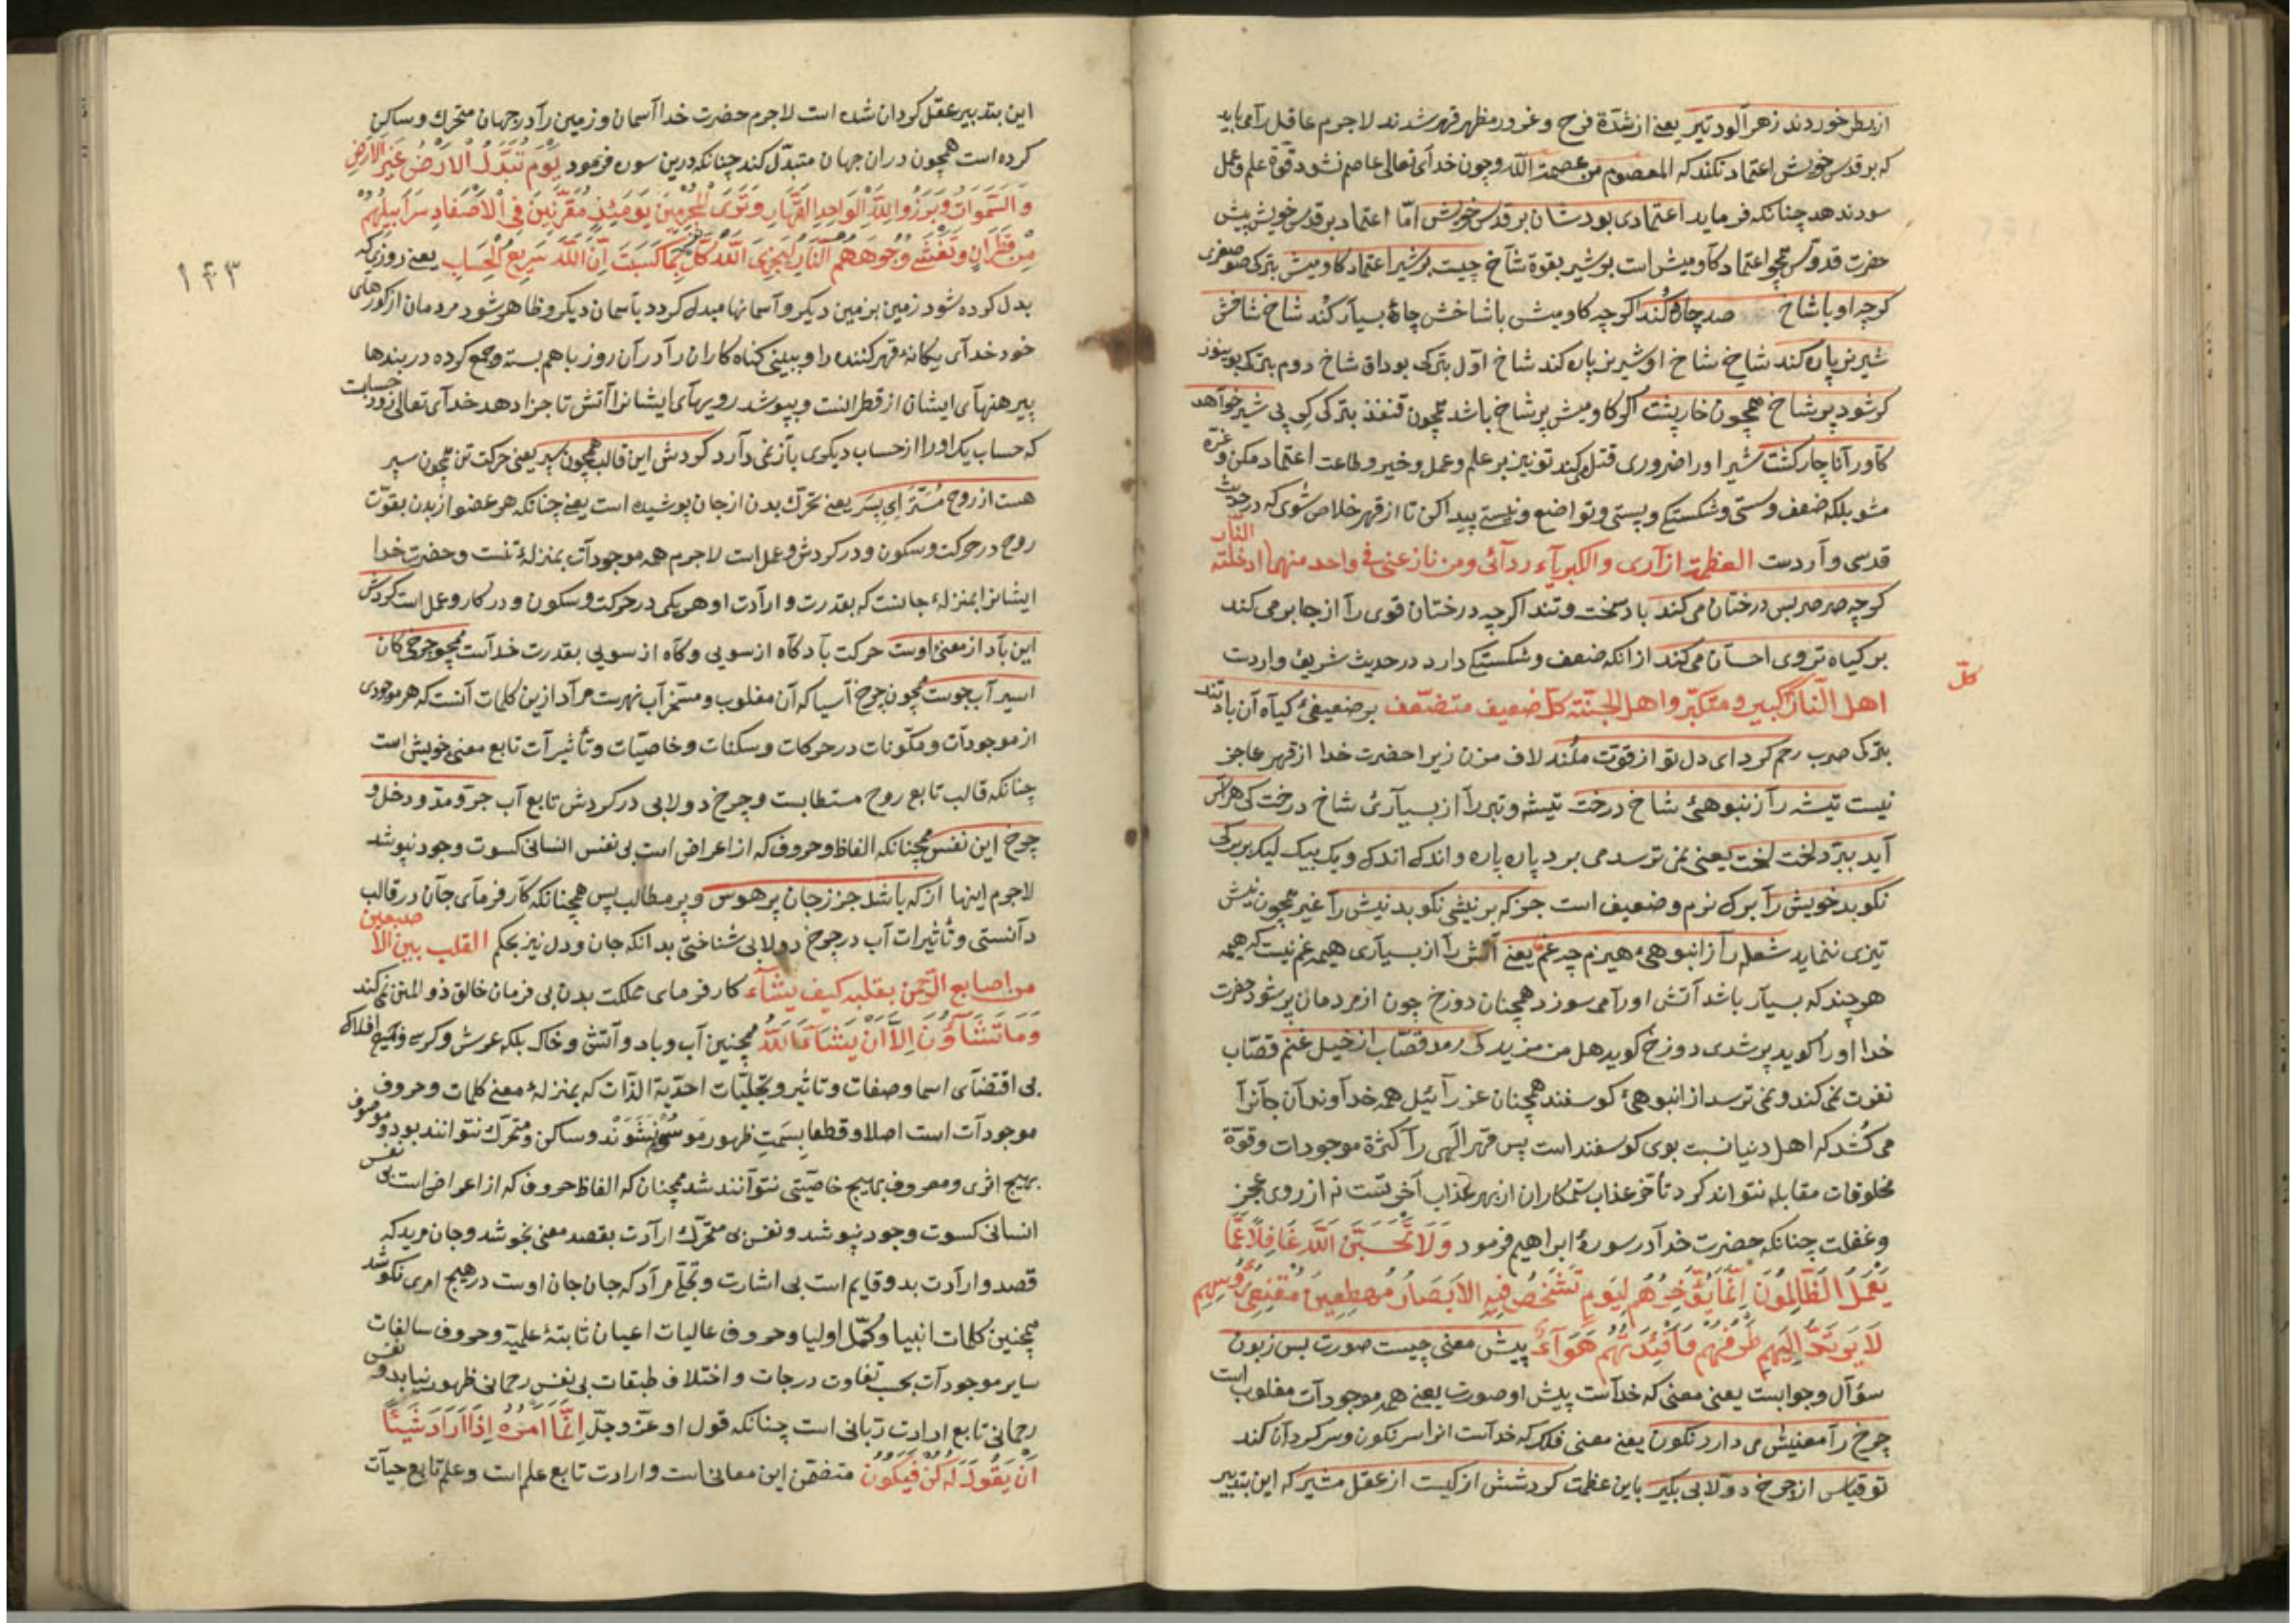 از بطر خوردند زهرآلود تیر یعنی از شدّة فرح و غرور مظهر قهر شدند لاجرم عاقل را می باید
که بر قدس خویش اعتماد نکند که المعصوم من عصمة اللّه و چون خدای تعالی عاصم نشود قوّة علم و عمل
سود ندهد چنانکه فرماید اعتمادی بودشان بر قدس خویش امّا اعتماد بر قدس خویش پیش
حضرت قدّوس همچو اعتماد کاومیش است بر شیر بقوة شاخ چیست بر شیر اعتماد کاومیش بترکی صو صغری
کرچه او با شاخ صد چاره کند اکرچه کاومیش با شاخش چارهٔ بسیار کند شاخ شاخش
شیر نر پاره کند شاخ شاخ او شیر نر پاره کند شاخ اوّل بترکی بوداق شاخ دوم بترکی بوینوز
کر شود پر شاخ همچون خارپشت اکر کاومیش پر شاخ باشد همچون قنفذ بترکی کرپی شیر خواهد
کاو را ناچار کشت شیر او را ضروری قتل می کند تو نیز بر علم و عمل و خیر و طاعت اعتماد مکن و غرّه
مشو بلکه ضعف و سستی و شکستکی و پستی و تواضع و نیستی پیدا کن تا از قهر خلاص شوی که در حدیث
قدسی واردست العظمة ازاری والکبریاء ردائی ومن نازعنی فی واحد منهما ادخلته النّار
کرچه صرصر بس درختان می کند باد سخت و تند اکرچه درختان قوی را از جا بر می کند
بر کیاه تر وی احسان می کند از انکه ضعف و شکستکی دارد در حدیث شریف واردست
اهل النّار کلّ کبیر ومتکبّر واهل الجنّة کلّ ضعیف متضعّف بر ضعیفیٔ کیاه آن باد تند
بترکی صرب رحم کرد ای دل تو از قوّت ملند لاف مزن زیرا حضرت خدا از قهر عاجز
نیست تیشه را ز انبوهیٔ شاخ درخت تیشه و تبر را از بسیاریٔ شاخ درخت کی هراس
آید ببرّد لخت لخت یعنی نمی ترسد می برد پاره پاره و اندک اندک و یک بیک لیک بر برکی
نکوبد خویش را برک نرم و ضعیف است جز که بر نیشی نکوبد نیش را غیر همچون نیش
تیزی ننماید شعله را ز انبوهیٔ هیزم چه غم یعنی آتش را از بسیاری هیمه غم نیست که هیمه
هر چند که بسیار باشد آتش او را می سوزد همچنان دوزخ چون از مردمان پر شود حضرت
خدا او را کوید پر شدی دوزخ کوید هل من مزید کی رمد قصّاب از خیل غنم قصّاب
نفرت نمی کند و نمی ترسد از انبوهیٔ کوسفند همچنان عزرائیل همه خداوندان جانرا
می کُشد که اهل دنیا نسبت بوی کوسفند است پس قهر الهی را کثرة موجودات و قوّة
مخلوقات مقابله نتواند کرد تأخّر عذاب ستمکاران از بهر عذاب آخرتست نه از روی عجز
و غفلت چنانکه حضرت خدا در سورهٔ ابراهیم فرمود وَلَا تَحْسَبَنَّ اللّٰهَ غَافِلًا عَمَّا
یَعْمَلُ الظَّالِمُونَ اِنَّمَا یُؤَخِّرُهُمْ لِیَوْمٍ تَشْخَصُ فِیهِ الْاَبْصَارُ مُهْطِعِینَ مُقْنِعِی رُؤُسِهِمْ
لَا یَرْتَدُّ اِلَیْهِمْ طَرْفُهُمْ وَاَفْئِدَتُهُمْ هَوَآءٌ پیش معنی چیست صورت بس زبون
سؤال و جوابست یعنی معنی که خداست پیش او صورت یعنی همه موجودات مغلوب است
چرخ را معنیش می دارد نکون یعنی معنی فلک که خداست انرا سرنکون و سرکردان کند
تو قیاس از چرخ دولابی بکیر باین عظمت کردشش از کیست از عقل مشیر که این بتدبیر
کلّ
این بتدبیر عقل کردان شده است لاجرم حضرت خدا آسمان و زمین را در جهان متحرک و ساکن
کرده است همچون در ان جهان متبدّل کند چنانکه درین سوره فرمود یَوْمَ تُبَدَّلُ الْاَرْضُ غَیْرَ الْاَرْضِ
وَالسَّمٰوَاتُ وَبَرَزُوا لِلّٰهِ الْوَاحِدِ الْقَهَّارِ وَتَرَی الْمُجْرِمِینَ یَوْمَئِذٍ مُقَرَّنِینَ فِی الْاَصْفَادِ سَرَابِیلُهُمْ
مِنْ قَطِرَانٍ وَتَغْشٰی وُجُوهَهُمُ النَّارُ لِیَجْزِیَ اللّٰهُ کُلَّ نفس مَا کَسَبَتْ اِنَّ اللّٰهَ سَرِیعُ الْحِسَابِ یعنی روزی که
۱۴۳
بدل کرده شود زمین بزمین دیکر و آسمانها مبدل کردد بآسمان دیکر و ظاهر شود مردمان از کورهای
خود خدای یکانهٔ قهر کننده را و ببینی کناه کاران را در آن روز باهم بسته و جمع کرده در بندها
پیرهنهای ایشان از قطرانست و بپوشد رویهای ایشانرا آتش تا جزا دهد خدای تعالی زود حسابست
که حساب یک او را از حساب دیکری باز نمی دارد کردش این قالب همچون سپر یعنی حرکت تن همچون سپر
هست از روح مُستّر ای پسر یعنی تحرّک بدن از جان پوشیده است یعنی چنانکه هر عضو از بدن بقوّت
روح در حرکت و سکون و در کردش و عمل است لاجرم همه موجودات بمنزلهٔ تنست و حضرت خدا
ایشانرا بمنزلهٔ جانست که بقدرت و ارادت او هر یکی در حرکت و سکون و در کار و عمل است کردش
این باد از معنیٔ اوست حرکت باد کاه از سویی و کاه از سویی بقدرت خداست همچو چرخی کان
اسیر آب جوست همچون چرخ آسیا که آن مغلوب و مسخّر آب نهرست مراد ازین کلمات آنست که هر موجودی
از موجودات و مکوّنات در حرکات و سکنات و خاصیّات و تأثیرات تابع معنی خویش است
چنانکه قالب تابع روح مستطابست و چرخ دولابی در کردش تابع آب جرّ و مدّ و دخل و
خرج این نفس همچنانکه الفاظ و حروف که از اعراض است بی نفس انسانی کسوت وجود نپوشد
لاجرم اینها از که باشد جز ز جان پر هوس و پر مطالب پس همچنانکه کارفرمای جان در قالب
دانستی و تأثیرات آب در چرخ دولابی شناختی بدانکه جان و دل نیز بحکم القلب بین الاصبعین
من اصابع الرّحمن یقلبه کیف یشآء کارفرمای مملکت بدن بی فرمان خالق ذو المنن نمی کند
وَمَا تَشَآؤُنَ اِلَّا اَنْ یَشَآءَ اللّٰهُ همچنین آب و باد و آتش و خاک بلکه عرش و کرسی و جمیع افلاک
بی اقتضای اسما و صفات و تاثیر و تجلّیات احدیّة الذّات که بمنزلهٔ معنی کلمات و حروف
موجودات است اصلا و قطعا بِسِمَتِ ظهور موسوم نشوند و ساکن و متحرّک نتوانند بود و موصوف
بهیچ اثری و معروف بهیچ خاصیّتی نتوانند شد همچنان که الفاظ حروف که از اعراض است بی نفس
انسانی کسوت وجود نپوشد و نفس بی متحرّک ارادت بقصد معنی نجوشد و جان مرید که
قصد و ارادت بدو قایم است بی اشارت و تجلّی مراد که جان جان اوست در هیچ امری نکوشد
همچنین کلمات انبیا و کمّل اولیا و حروف عالیات اعیان ثابتهٔ علمیّه و حروف سالفات
سایر موجودات بحسب تفاوت درجات و اختلاف طبقات بی نفس رحمانی ظهور نیابد و نفس
رحمانی تابع ارادت ربّانی است چنانکه قول او عزّ و جلّ اِنَّمَا اَمْرُهُ اِذَا اَرَادَ شَیْئًا
اَنْ یَقُولَ لَهُ کُنْ فَیَکُونُ متضمّن این معانی است و ارادت تابع علم است و علم تابع حیات